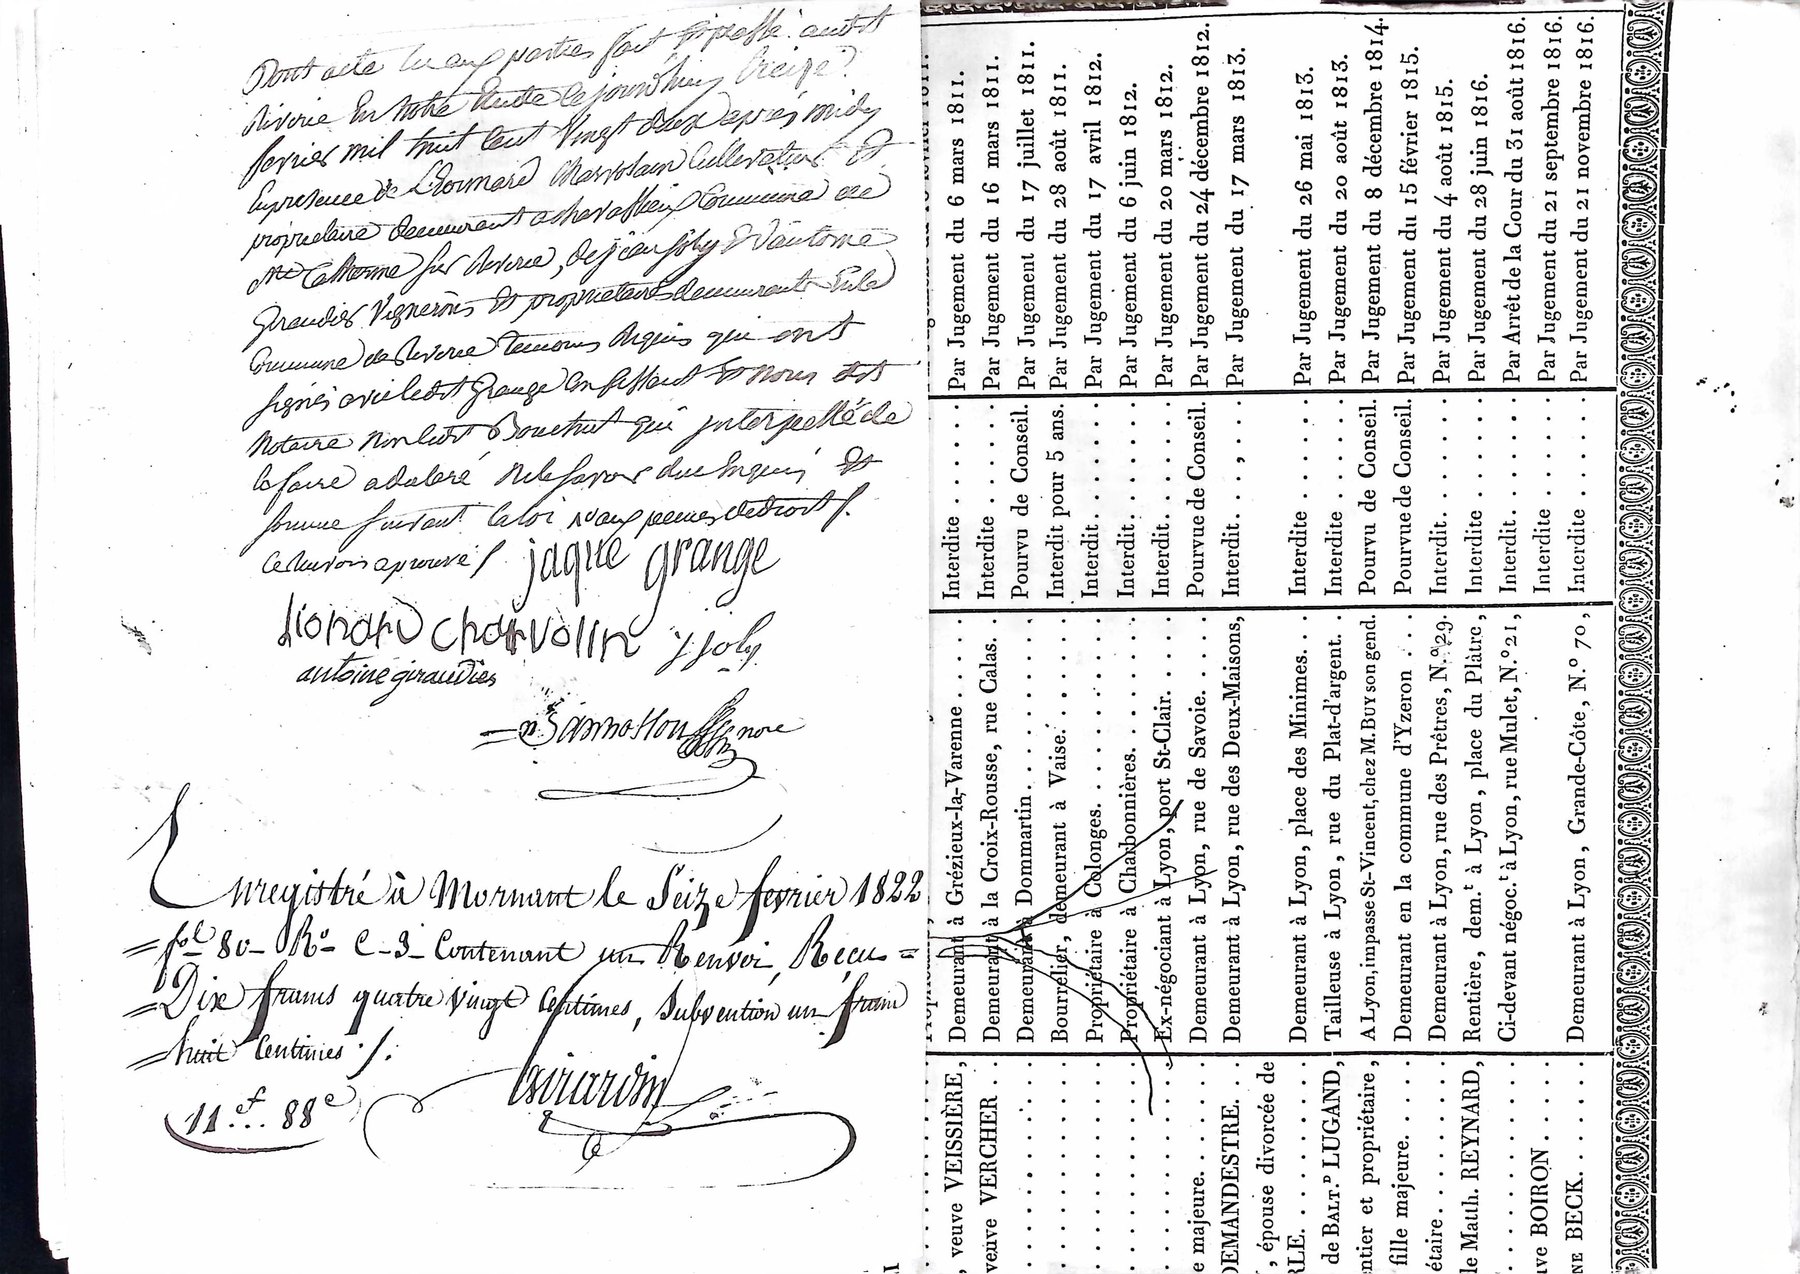 Dont acte lu aux parties fait et passé audit
Riverie En notre Etude Cejourd'huy treize
fevrier mil huit Cent Vingt deux après midy
En presence de Leonnard Charvolain Cultivateur Et
propriétaire demeurant a Commune de
Ste Catherine sur Riverie, de jean joly & d'antoine
Giraudier Vignerons Et propriétaires demeurants En la
Commune de Riverie temoins Requis qui ont
signés avec ledit Grange Confessant Et Nous dit
Notaire Non ledit Bouchut qui interpellé de
le faire a declaré Ne le savoir due Enquis Et
somme suivant la loi
aprouvé /.
jaque grange
lionard charvolin
j joly
antoine giraudier
nore
Enregistré à Mornant le Seize fevrier 1822
= fol 80 - Ro - C - 3 - Contenant un Renvoi, Reçu =
= Dix francs quatre vingt Centimes, Subvention un franc
= huit Centimes ./.
Girardin
11 f... 88 c
, veuve VEISSIÈRE, Demeurant à Grézieux-la-Varenne . . . . Interdite . . . . . . Par Jugement du 6 mars 1811.
veuve VERCHER . . Demeurant à la Croix-Rousse, rue Calas. . Interdite . . . . . . Par Jugement du 16 mars 1811.
. . . . . . . . . Demeurant à Dommartin . . . . . . . . Pourvu de Conseil. Par Jugement du 17 juillet 1811.
. . . . . . . . . Bourrelier, demeurant à Vaise. . . . . . Interdit pour 5 ans. Par Jugement du 28 août 1811.
. . . . . . . . . Propriétaire à Colonges. . . . . . . . . Interdit. . . . . . . Par Jugement du 17 avril 1812.
. . . . . . . . . Propriétaire à Charbonnières. . . . . . . Interdit. . . . . . . Par Jugement du 6 juin 1812.
. . . . . . . . . Ex-négociant à Lyon, port St-Clair. . . . Interdit. . . . . . . Par Jugement du 20 mars 1812.
e majeure. . . . . Demeurant à Lyon, rue de Savoie. . . . Pourvue de Conseil. Par Jugement du 24 décembre 1812.
DEMANDESTRE. . . Demeurant à Lyon, rue des Deux-Maisons, Interdit. . . , . . Par Jugement du 17 mars 1813.
, épouse divorcée de
RLE. . . . . . . . Demeurant à Lyon, place des Minimes. . . Interdite . . . . . . Par Jugement du 26 mai 1813.
de BALT.D LUGAND, Tailleuse à Lyon, rue du Plat-d'argent. . Interdite . . . . . . Par Jugement du 20 août 1813.
entier et propriétaire, A Lyon, impasse St-Vincent, chez M. BUY son gend. Pourvu de Conseil. Par Jugement du 8 décembre 1814.
fille majeure. . . . . Demeurant en la commune d'Yzeron . . . Pourvue de Conseil. Par Jugement du 15 février 1815.
étaire. . . . . . . . Demeurant à Lyon, rue des Prêtres, N.° 29. Interdit. . . . . . . Par Jugement du 4 août 1815.
le Matth. REYNARD, Rentière, dem.t à Lyon, place du Plâtre, Interdite . . . . . . Par Jugement du 28 juin 1816.
. . . . . . . . . Ci-devant négoc.t à Lyon, rue Mulet, N.° 21, Interdit. . . . . . . Par Arrêt de la Cour du 31 août 1816.
uve BOIRON . . . . Interdite . . . . . . Par Jugement du 21 septembre 1816.
NE BECK. . . . . . Demeurant à Lyon, Grande-Côte, N.° 70, Interdite . . . . . . Par Jugement du 21 novembre 1816.